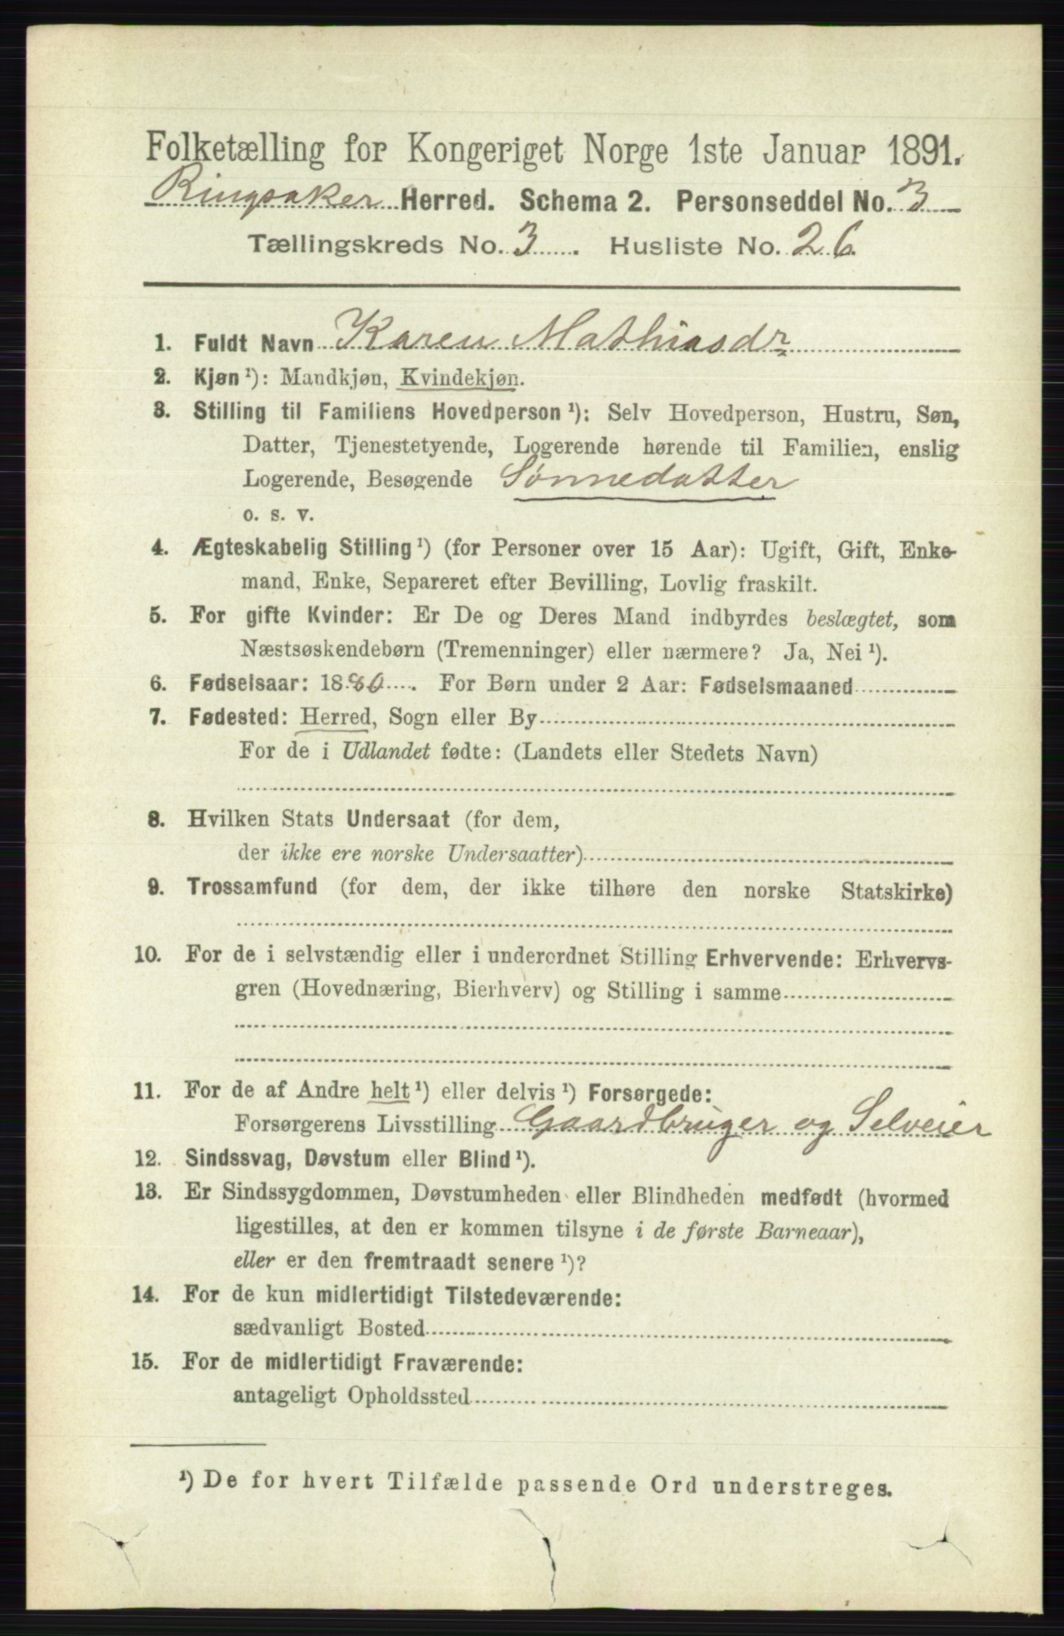 Folketælling for Kongeriget Norge 1ste Januar 1891.
Ringsaker Herred. Schema 2. Personseddel No. 3
Tællingskreds No. 3. Husliste No. 26.
1. Fuldt Navn Karen Mathiasdr
2. Kjøn ¹): Mandkjøn, Kvindekjøn.
3. Stilling til Familiens Hovedperson ¹): Selv Hovedperson, Hustru, Søn,
Datter, Tjenestetyende, Logerende hørende til Familien, enslig
Logerende, Besøgende Sønnedatter
o. s. v.
4. Ægteskabelig Stilling ¹) (for Personer over 15 Aar): Ugift, Gift, Enke-
mand, Enke, Separeret efter Bevilling, Lovlig fraskilt.
5. For gifte Kvinder: Er De og Deres Mand indbyrdes beslægtet, som
Næstsøskendebørn (Tremenninger) eller nærmere? Ja, Nei ¹).
6. Fødselsaar: 1880. For Børn under 2 Aar: Fødselsmaaned
7. Fødested: Herred, Sogn eller By
For de i Udlandet fødte: (Landets eller Stedets Navn)
8. Hvilken Stats Undersaat (for dem,
der ikke ere norske Undersaatter)
9. Trossamfund (for dem, der ikke tilhøre den norske Statskirke)
10. For de i selvstændig eller i underordnet Stilling Erhvervende: Erhvervs-
gren (Hovednæring, Bierhverv) og Stilling i samme
11. For de af Andre helt ¹) eller delvis ¹) Forsørgede:
Forsørgerens Livsstilling Gaardbruger og Selveier
12. Sindssvag, Døvstum eller Blind ¹).
13. Er Sindssygdommen, Døvstumheden eller Blindheden medfødt (hvormed
ligestilles, at den er kommen tilsyne i de første Barneaar),
eller er den fremtraadt senere ¹)?
14. For de kun midlertidigt Tilstedeværende:
sædvanligt Bosted
15. For de midlertidigt Fraværende:
antageligt Opholdssted
¹) De for hvert Tilfælde passende Ord understreges.